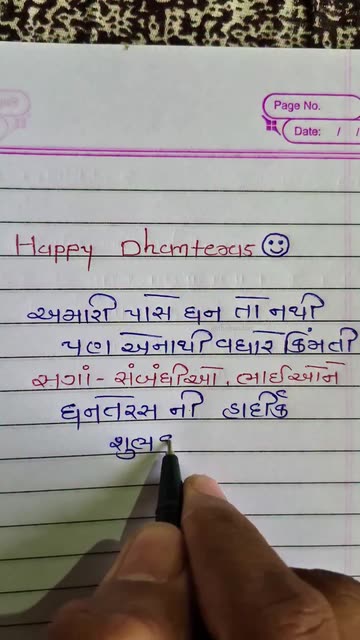 Page No.
Date: / /
Happy Dhanteras
અમારી પાસે ધન તો નથી
પણ એનાથી વધારે કિંમતી
સગાં - સંબંધીઓ, ભાઈઓને
ધનતેરસ ની હાર્દીક
શુભ